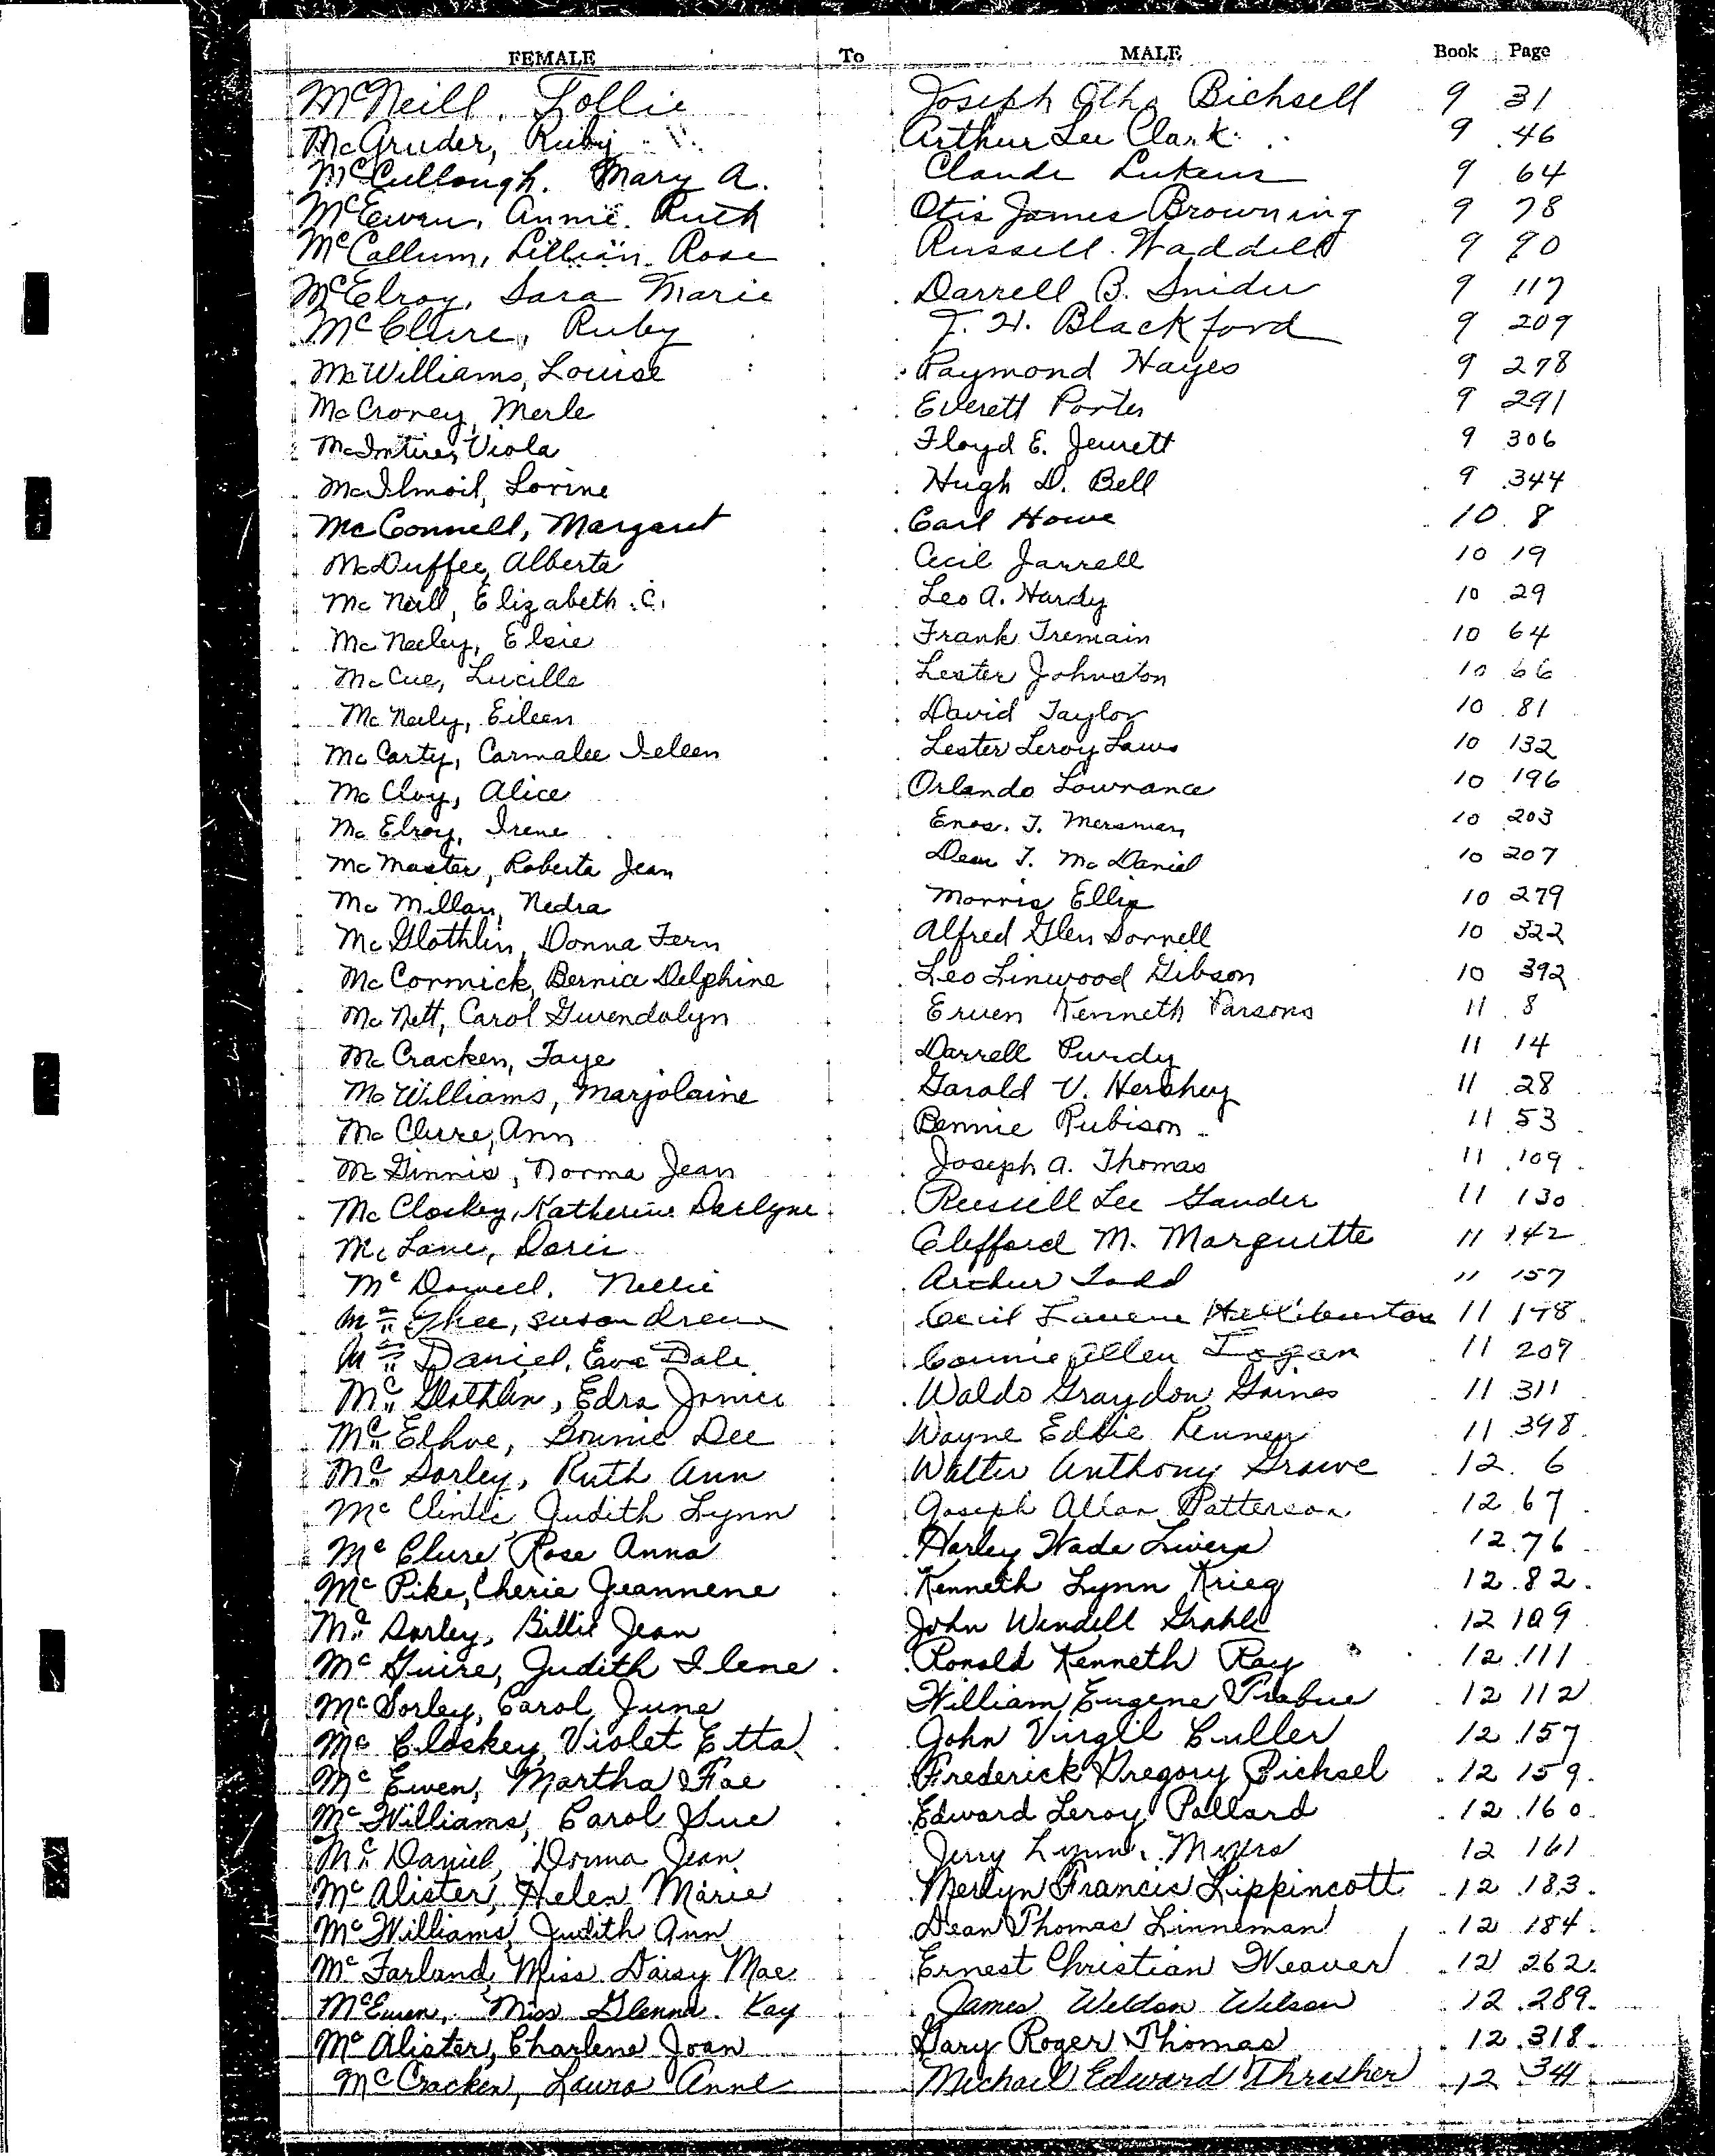 FEMALE To MALE Book Page
McNeill, Lollie Joseph Otho Bichsell 9 31
McGruder, Ruby Arthur Lee Clark 9 46
McCullough, Mary A. Claude Lukens 9 64
McEwen, Annie Ruth Otis James Browning 9 78
McCollum, Lillian Rose Russell Waddell 9 90
McElroy, Sara Marie Darrell B. Snider 9 117
McClure, Ruby T. H. Blackford 9 209
McWilliams, Louise Raymond Hayes 9 278
McCroney, Merle Everett Porter 9 291
McIntire, Viola Floyd E. Jewett 9 306
McIlmoil, Lorine Hugh D. Bell 9 344
McConnell, Margaret Carl Howe 10 8
McDuffee, Alberta Cecil Jarrell 10 19
McNeill, Elizabeth C. Leo A. Hardy 10 29
McNeeley, Elsie Frank Tremain 10 64
McCue, Lucille Lester Johnston 10 66
McNeely, Eileen David Taylor 10 81
McCarty, Carmalee Ieleen Lester Leroy Laws 10 132
McCloy, Alice Orlando Lowrance 10 196
McElroy, Irene Enos. T. Mersman 10 203
McMaster, Roberta Jean Dean T. McDaniel 10 207
McMillan, Nedra Morris Ellis 10 279
McGlothlin, Donna Fern Alfred Glen Sornell 10 322
McCormick, Bernia Delphine Leo Linwood Gibson 10 392
McNett, Carol Gwendolyn Erwen Kenneth Parsons 11 8
McCracken, Faye Darrell Purdy 11 14
McWilliams, Marjolaine Garold V. Hershey 11 28
McClure, Ann Bennie Rubison 11 53
McGinnis, Norma Jean Joseph A. Thomas 11 109
McCloskey, Katherine Darlyne Russell Lee Gander 11 130
McLane, Doris Clifford M. Marquette 11 142
McDowell, Nellie Arthur Todd 11 157
McGhee, Susan Drew Cecil Laverne Halliburton 11 178
McDaniel, Eva Dale Connie Allen Logan 11 209
McGlothlin, Edra Janice Waldo Graydon Gaines 11 311
McElhoe, Bonnie Dee Wayne Eddie Penney 11 398
McSorley, Ruth Ann Walter Anthony Growe 12 6
McClintic Judith Lynn Joseph Allan Patterson 12 67
McClure Rose Anna Harley Wade Livers 12 76
McPike, Cherie Jeannene Kenneth Lynn Krieg 12 82
McSorley, Billie Jean John Wendell Grahl 12 109
McGuire, Judith Ilene Ronald Kenneth Ray 12 111
McSorley, Carol June William Eugene Trabue 12 112
McCloskey, Violet Etta John Virgil Culler 12 157
McEwen, Martha Fae Frederick Gregory Bichsel 12 159
McWilliams, Carol Sue Edward Leroy Pollard 12 160
McDaniel, Donna Jean Jerry Lynn Myers 12 161
McAlister, Helen Marie Merlyn Francis Lippincott 12 183
McWilliams, Judith Ann Dean Thomas Linneman 12 184
McFarland, Miss Daisy Mae Ernest Christian Weaver 12 262
McEwen, Miss Glenna Kay James Weldon Wilson 12 289
McAlister, Charlene Joan Gary Roger Thomas 12 318
McCracken, Laura Anne Michael Edward Thrasher 12 341